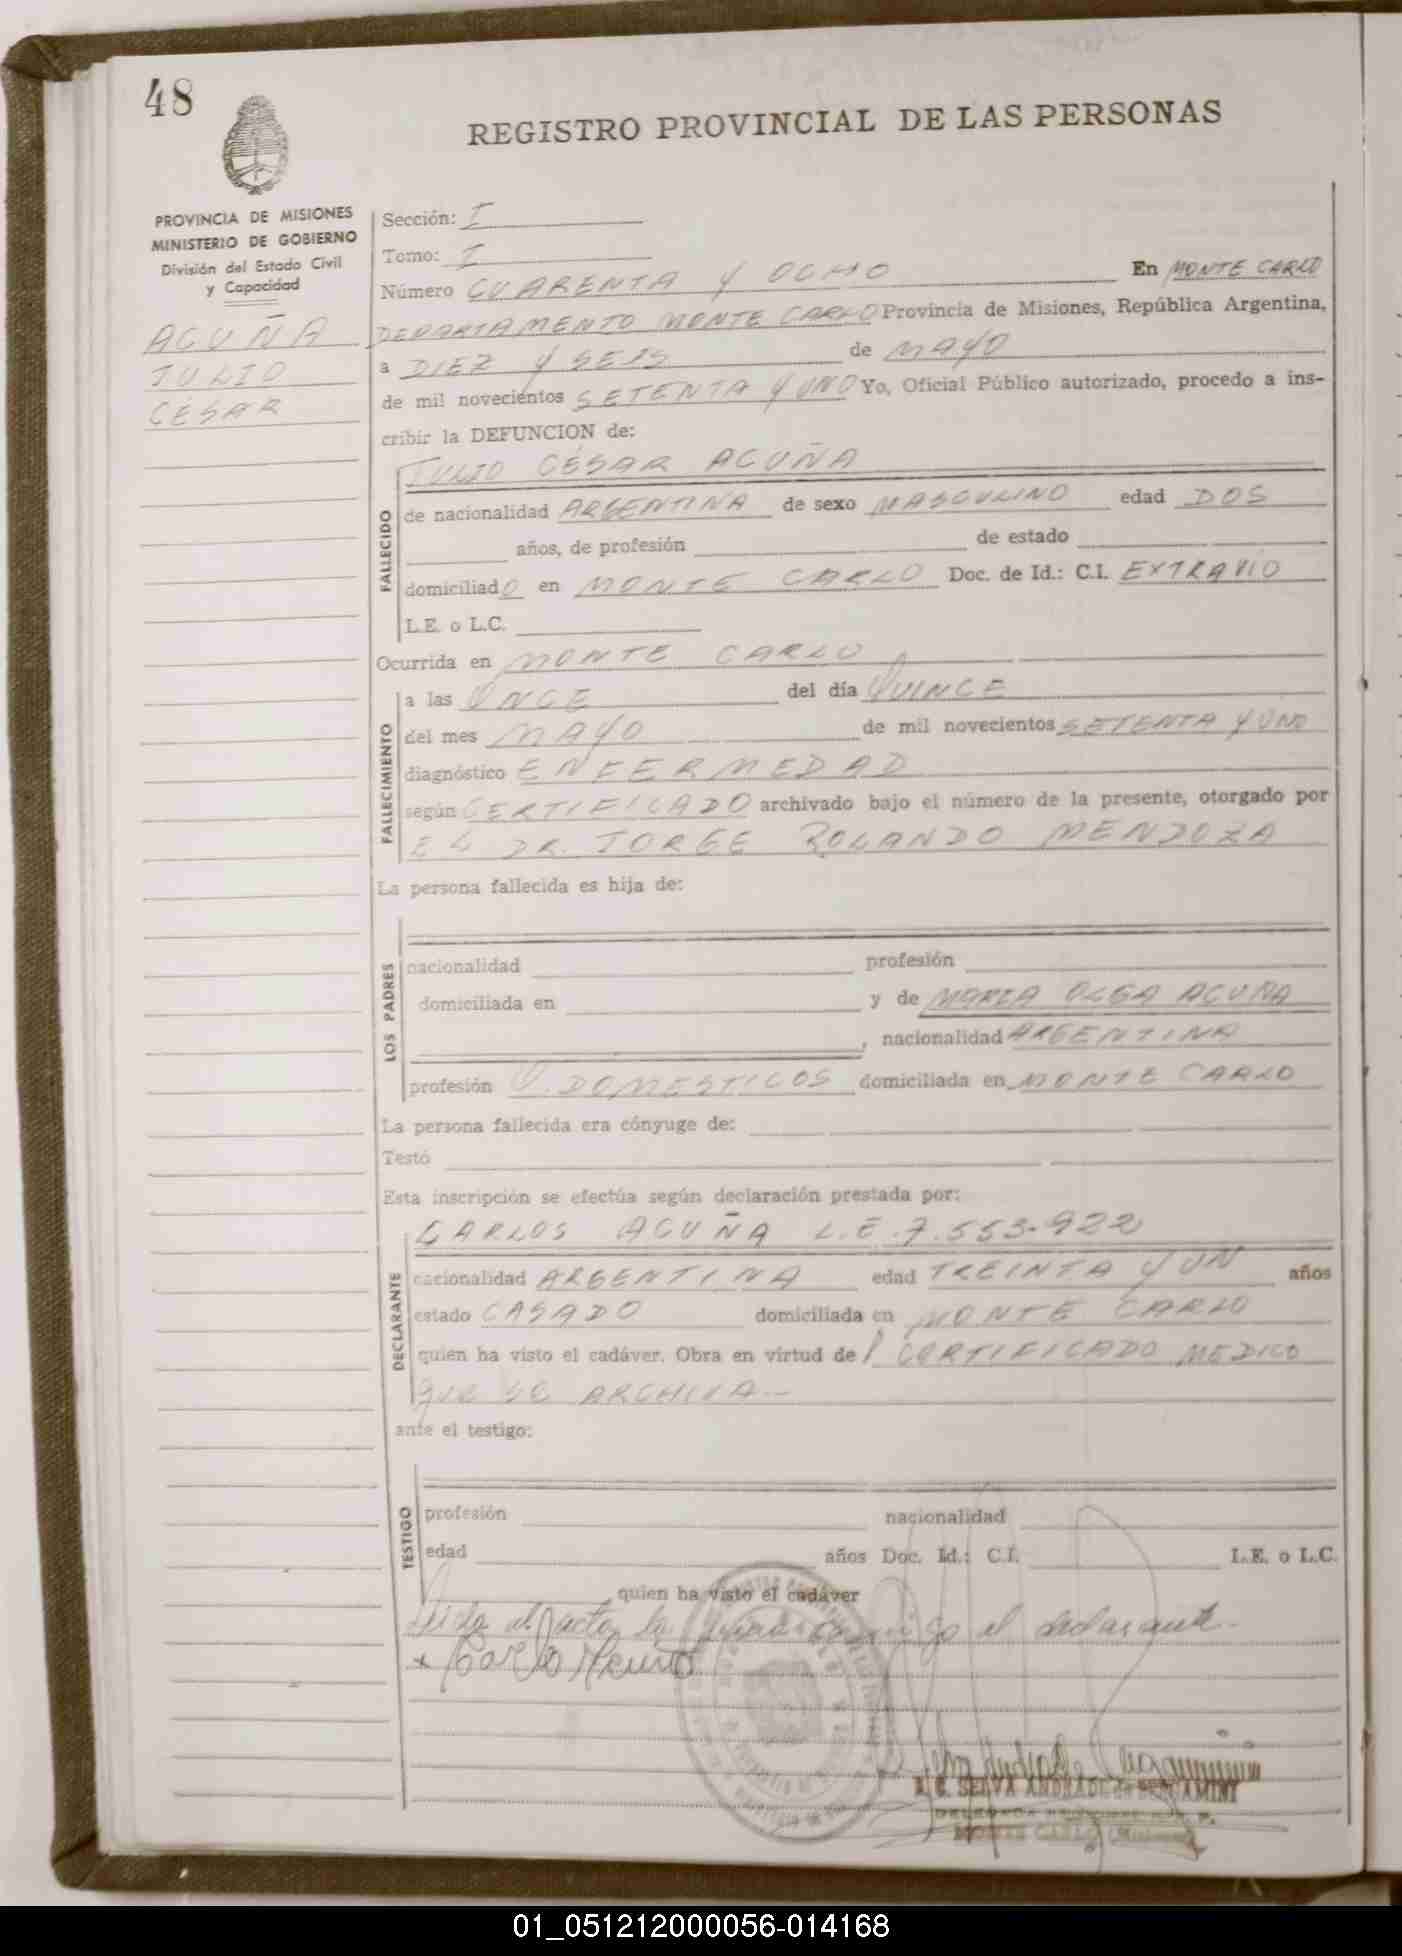 48
REGISTRO PROVINCIAL DE LAS PERSONAS
PROVINCIA DE MISIONES
MINISTERIO DE GOBIERNO
División del Estado Civil
y Capacidad
ACUÑA
JULIO
CÉSAR
Sección: I
Tomo: I
Número CUARENTA Y OCHO En MONTE CARLO
DEPARTAMENTO MONTE CARLO Provincia de Misiones, República Argentina,
a DIEZ Y SEIS de MAYO
de mil novecientos SETENTA Y UNO Yo, Oficial Público autorizado, procedo a ins-
cribir la DEFUNCION de:
JULIO CÉSAR ACUÑA
FALLECIDO
de nacionalidad ARGENTINA de sexo MASCULINO edad DOS
años, de profesión de estado
domiciliado en MONTE CARLO Doc. de Id.: C.I. EXTRAVIO
L.E. o L.C.
Ocurrida en MONTE CARLO
FALLECIMIENTO
a las ONCE del día QUINCE
del mes MAYO de mil novecientos SETENTA Y UNO
diagnóstico ENFERMEDAD
según CERTIFICADO archivado bajo el número de la presente, otorgado por
EL DR. JORGE ROLANDO MENDOZA
La persona fallecida es hija de:
LOS PADRES
nacionalidad profesión
domiciliada en y de MARIA OLGA ACUÑA
, nacionalidad ARGENTINA
profesión Q. DOMESTICOS domiciliada en MONTE CARLO
La persona fallecida era cónyuge de:
Testó
Esta inscripción se efectúa según declaración prestada por:
CARLOS ACUÑA L.E. 7.553.922
DECLARANTE
nacionalidad ARGENTINA edad TREINTA Y UN años
estado CASADO domiciliada en MONTE CARLO
quien ha visto el cadáver. Obra en virtud del CERTIFICADO MEDICO
QUE SE ARCHIVA.-
ante el testigo:
TESTIGO
profesión nacionalidad
edad años Doc. Id.: C.I. L.E. o L.C.
quien ha visto el cadáver
Leida el acta la firma conmigo el declarante.-
x Carlo Acuña
SELVA ANDRADE de BERGAMINI
MONTE CARLO (Misiones)
01_051212000056-014168